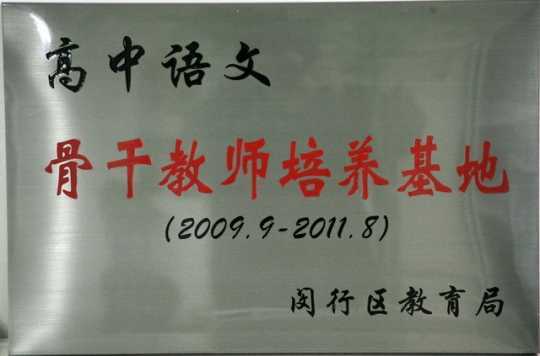 高中语文
骨干教师培养基地
(2009.9-2011.8)
闵行区教育局